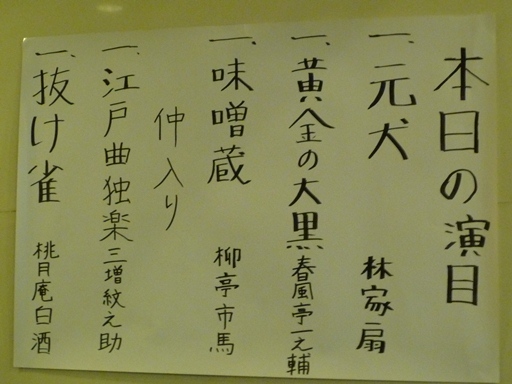 本日の演目
一、元犬 林家扇
一、黄金の大黒 春風亭一之輔
一、味噌蔵 柳亭市馬
仲入り
一、江戸曲独楽 三増紋之助
一、抜け雀 桃月庵白酒